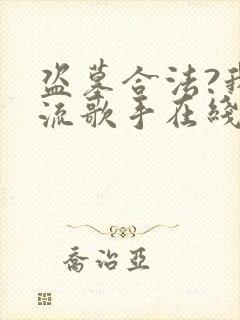 盗墓合法?我
流歌手在綫
喬治亞